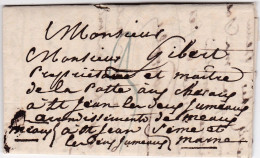 Monsieur
Monsieur Gibert
Propriétaire et maitre
de la Poste aux chevaux
a St Jean les deux Jumeaux
arrondissement de meaux
meaux a St Jean Seine et
les deux jumeaux marne